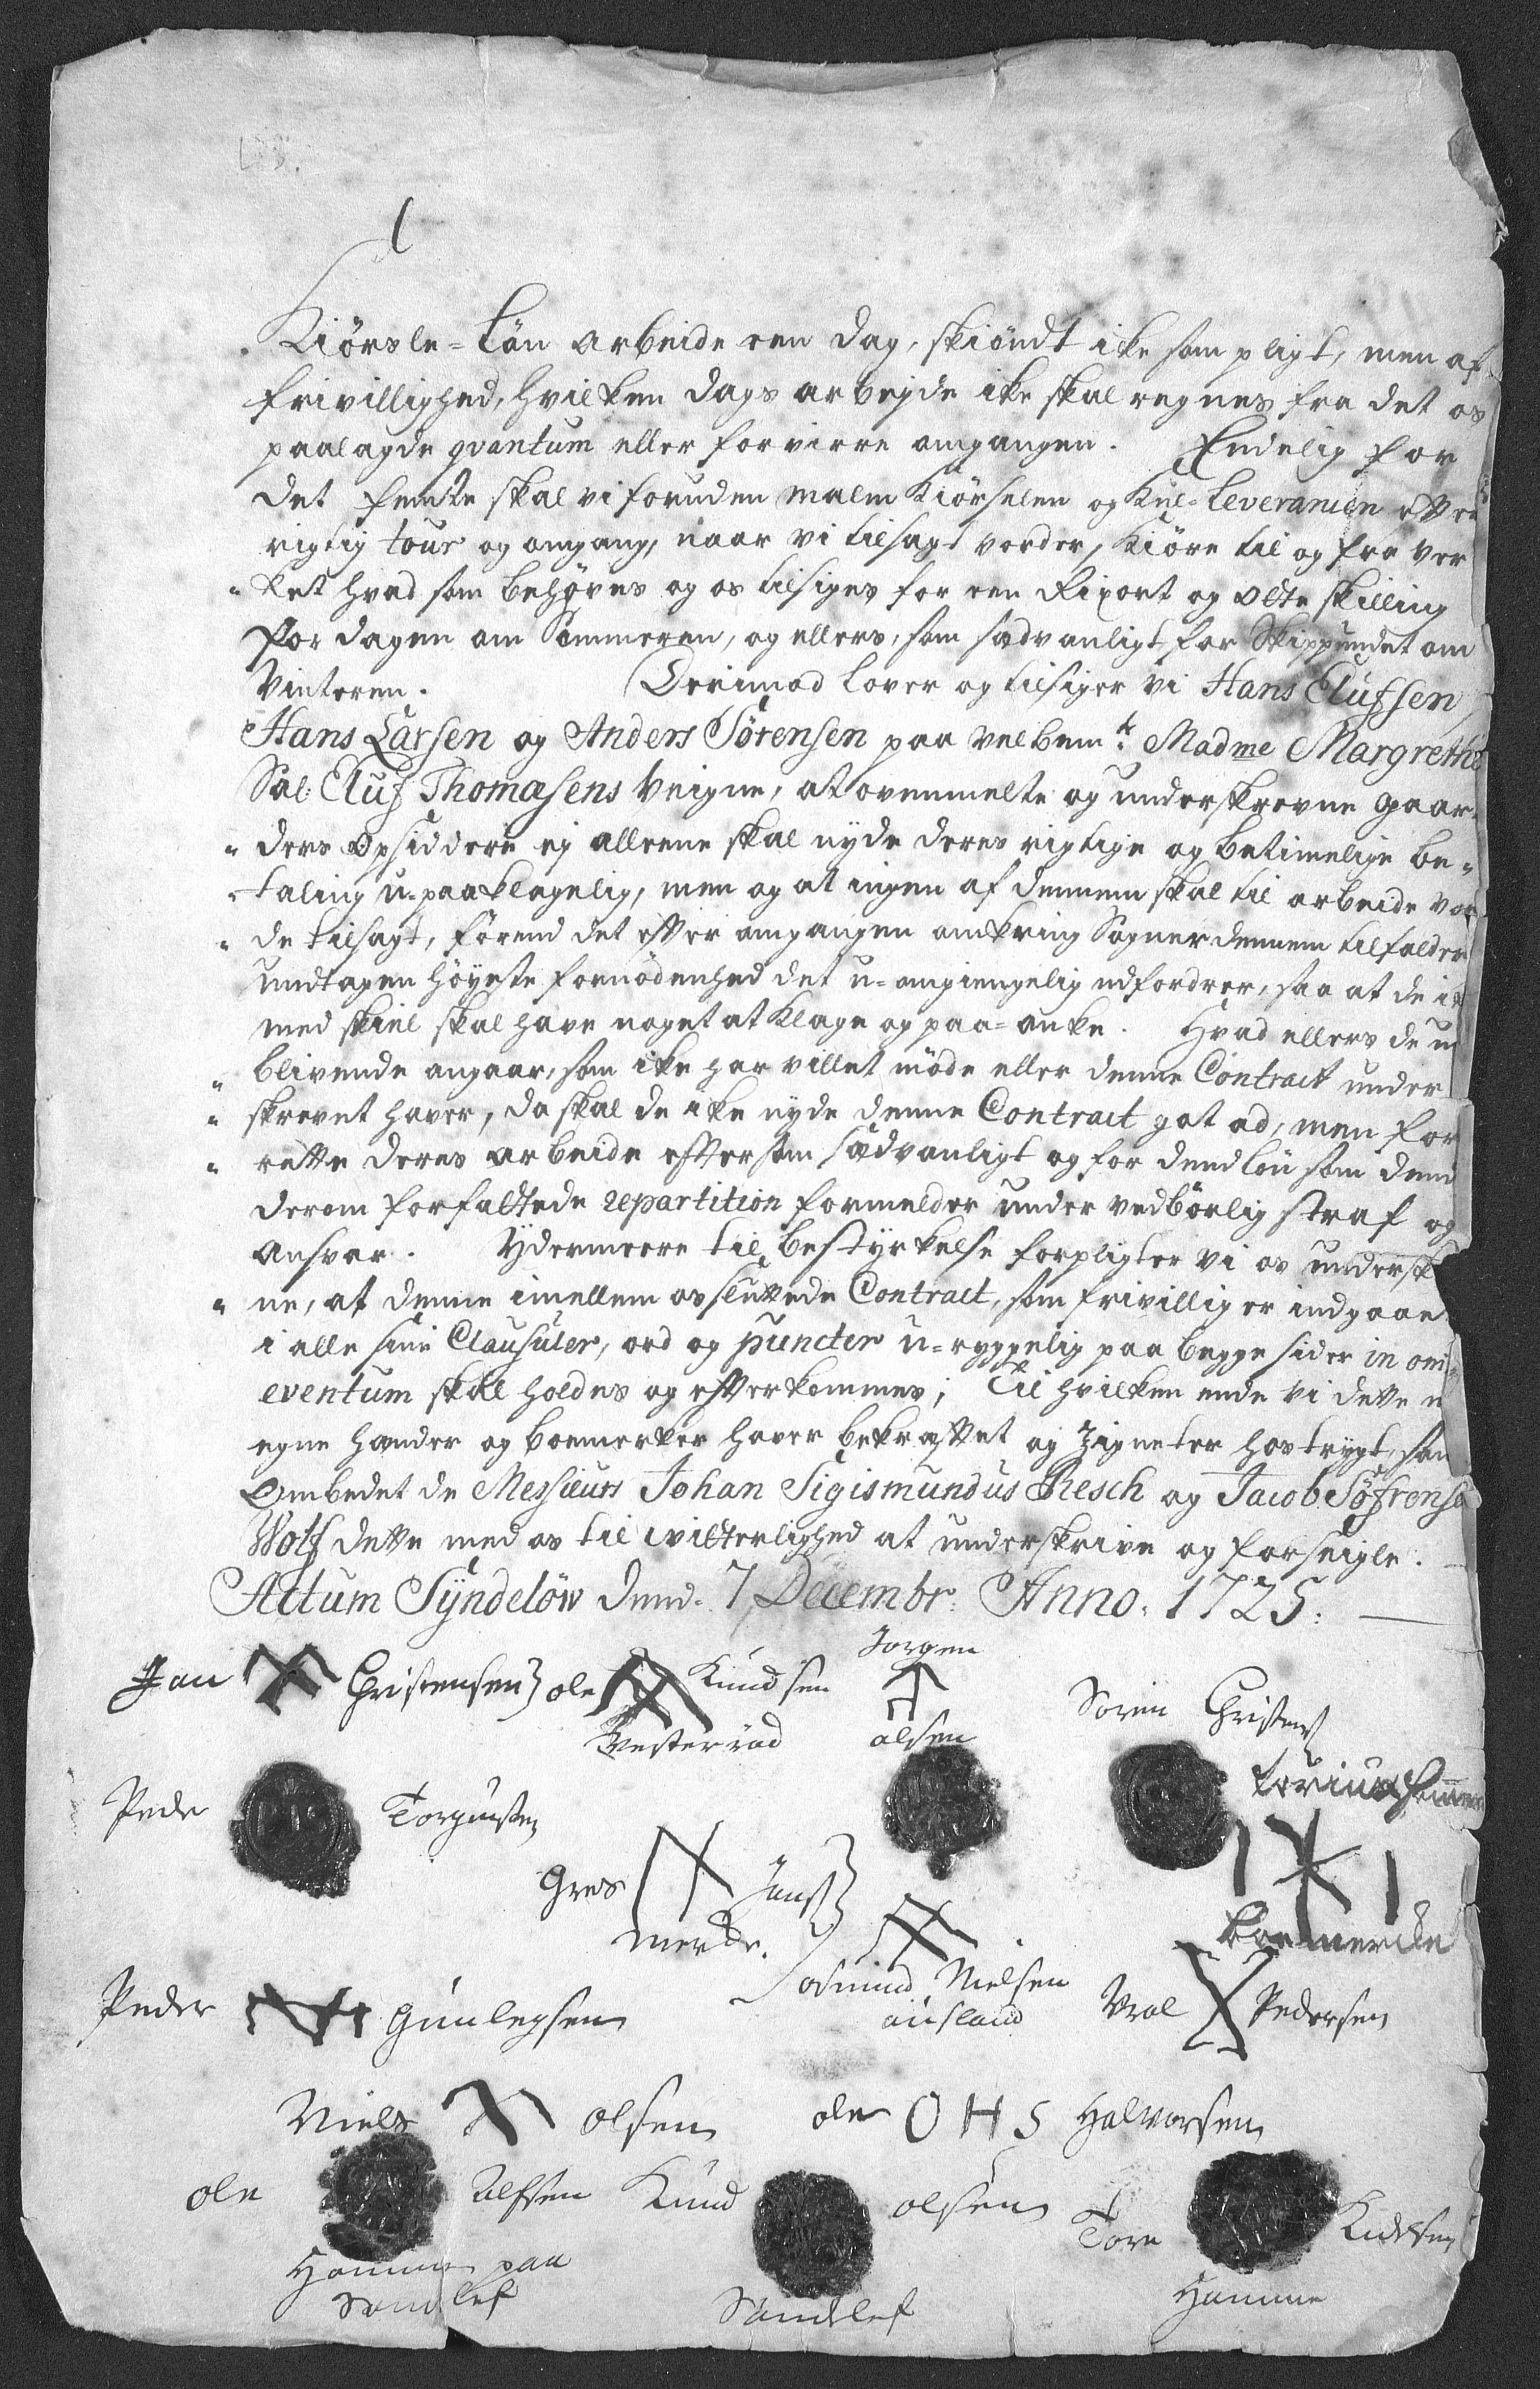 Kiörsle-Løn arbeide een dag, skiöndt icke som pligt, men af
frivillighed, hvilken dags arbejde icke skal regnes fra det os
paalagde qvantum eller forvirre omgangen. Endelig for
det femte skal vi foruden malm Kiörselen og Kul-Leverancen effter
rigtig tour og omgang, naar vi tilsagt vorder, Kiöre til og fra Ver
ket hvad som behöves og os tilsiges for een Rixort og otte skilling
for dagen om Sommeren, og ellers, som sædvanligt for Skippundet om
Vinteren. Derimod lover og tilsiger vi Hans Elufsen
Hans Larsen og Anders Sörensen paa velbemte: Madme Margrethe
Sal: Eluf Thomæsens Veigne, at ovenmelte og underskrevne gaar-
ders opsiddere ej alleene skal nyde deres rigtige og betimelige be-
taling u-paaklagelig, men og at ingen af dennem skal til arbeide vor
de tilsagt, förend det effter omgangen omkring Sogner dennem tilfalder
undtagen höyeste fornödenhed det u-omgiengelig udfordrer, saa at de ik
med skiel skal have noget at Klage og paa-anke. Hvad ellers de u
blivende angaar, som icke har villet möde eller denne Contract under
skrevet haver, da skal de icke nyde denne Contract got ad, men for
rette deres arbeide effter som sædvanligt og for dend lön som dend
derom forfattede repartition formelder under vedbörlig straf og
ansvar. Ydermeere til bestyrkelse forpligter vi os undersk
ne, at denne imellem os sluttede Contract, som frivillig er indgaae
i alle sine Clausuler, ord og puncter u-ryggelig paa begge sider in om
eventum skal holdes og effterkommes; Til hvilken ende vi dette
egne hænder og boemerker haver bekræfftet og Zigneter hostrygt, som
Ombedet de Messieurs Johan Sigismundus Resch og Jacob Söfrens
Wolf dette med os til vitterlighed at underskrive og forseigle.
Actum Syndelöw Dend. 7 Decembr: Anno. 1725.
Jan Christensen ole Knudsen Jorgen
Vesteraad olsen Sören Christens
Peder Torgusen
Gres Jans
merke.
boemercke
Aasmund Nielsen
Peder Gunlegsen Aasland Vral Pedersen
Niels olsen ole O H S Halvorsen
ole Ulfsen Knud olsen Tore Knudsen
Hommen paa
Sandlef Sandlef Homme